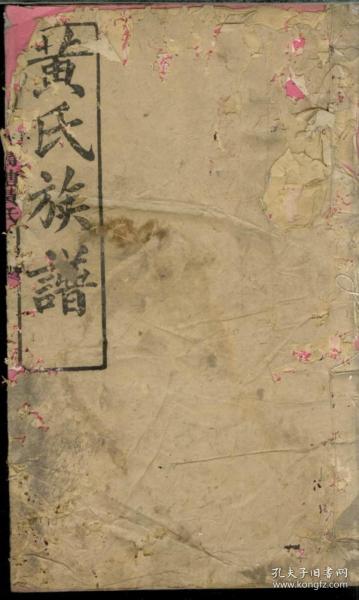 黃氏族譜
孔夫子旧书网
www.kongfz.com